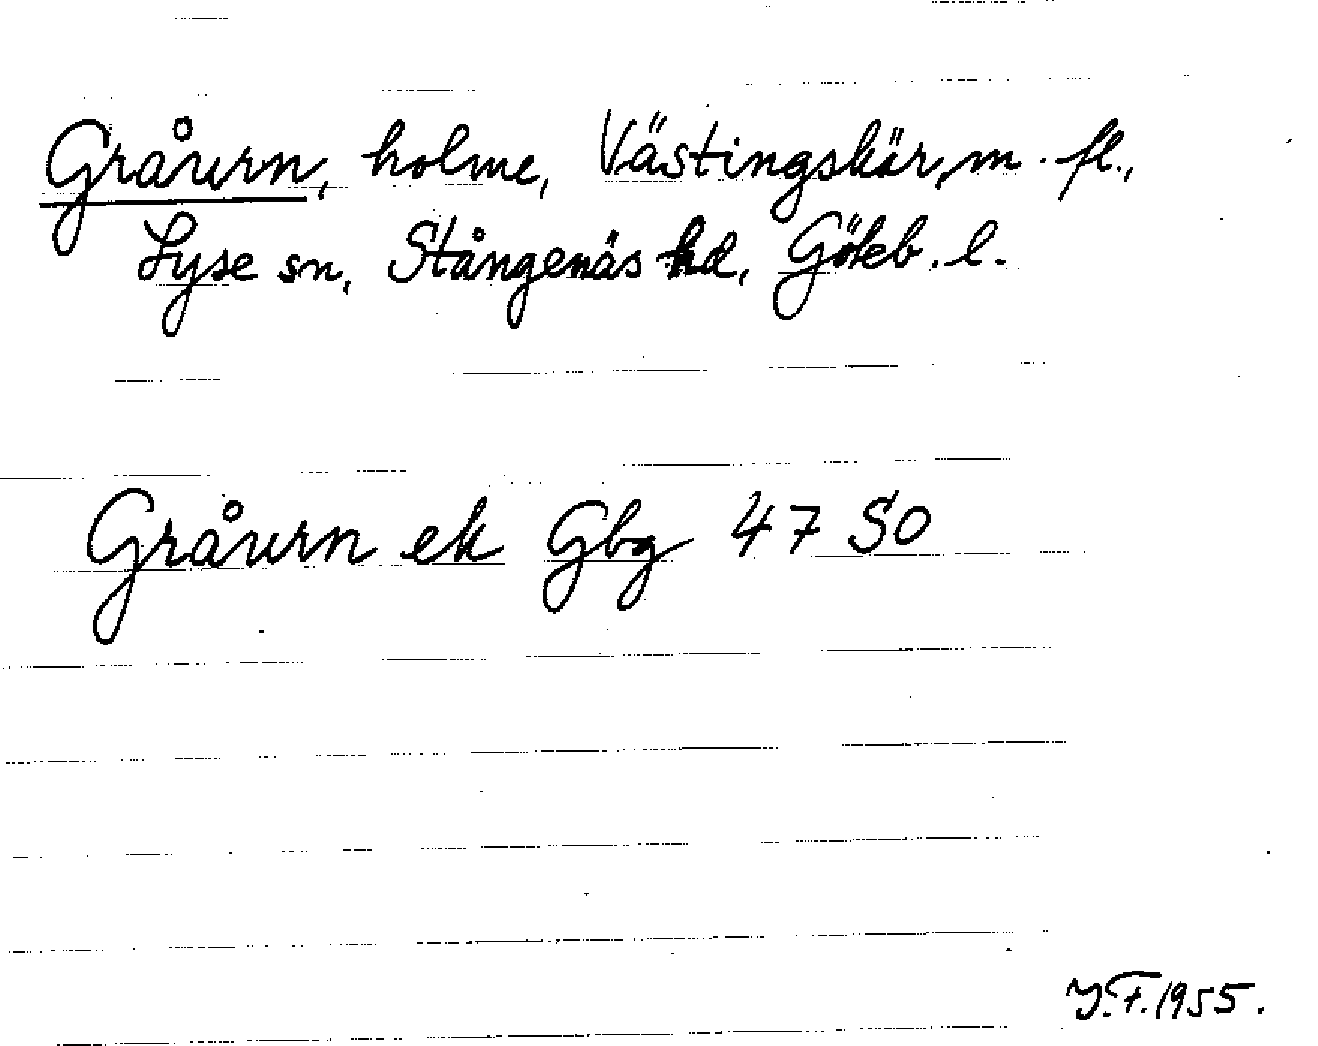 Gråurn, holme, Västingskär, m. fl.,
Lyse sn, Stångenäs hd, Göteb. l.
Gråurn ek Gbg 47 SO
Y.F. 1955.